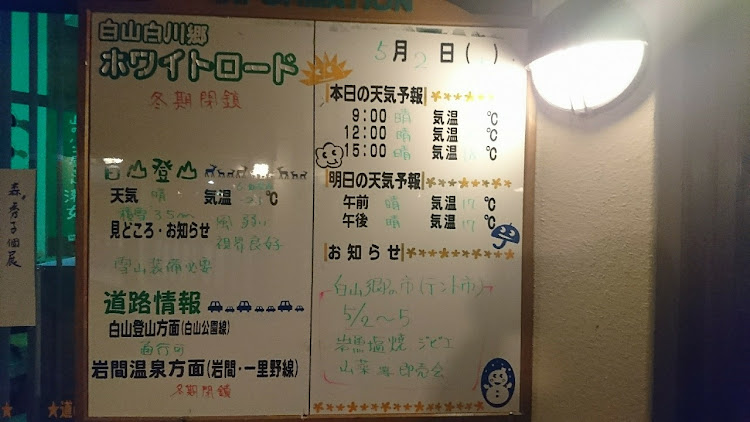 INFORMATION
白山白川郷
ホワイトロード
冬期閉鎖
白山登山
天気 晴 気温 ℃
積雪 3.5m
風弱い
見どころ・お知らせ
視界良好
雪山装備必要
道路情報
白山登山方面(白山公園線)
通行可
岩間温泉方面(岩間・一里野線)
冬期閉鎖
5月2日( )
本日の天気予報
9:00 晴 気温 ℃
12:00 晴 気温 ℃
15:00 晴 気温 ℃
明日の天気予報
午前 晴 気温 17 ℃
午後 晴 気温 17 ℃
お知らせ
白山郷の市(テント市)
5/2~5
岩魚塩焼 ジビエ
山菜 即売会
個展